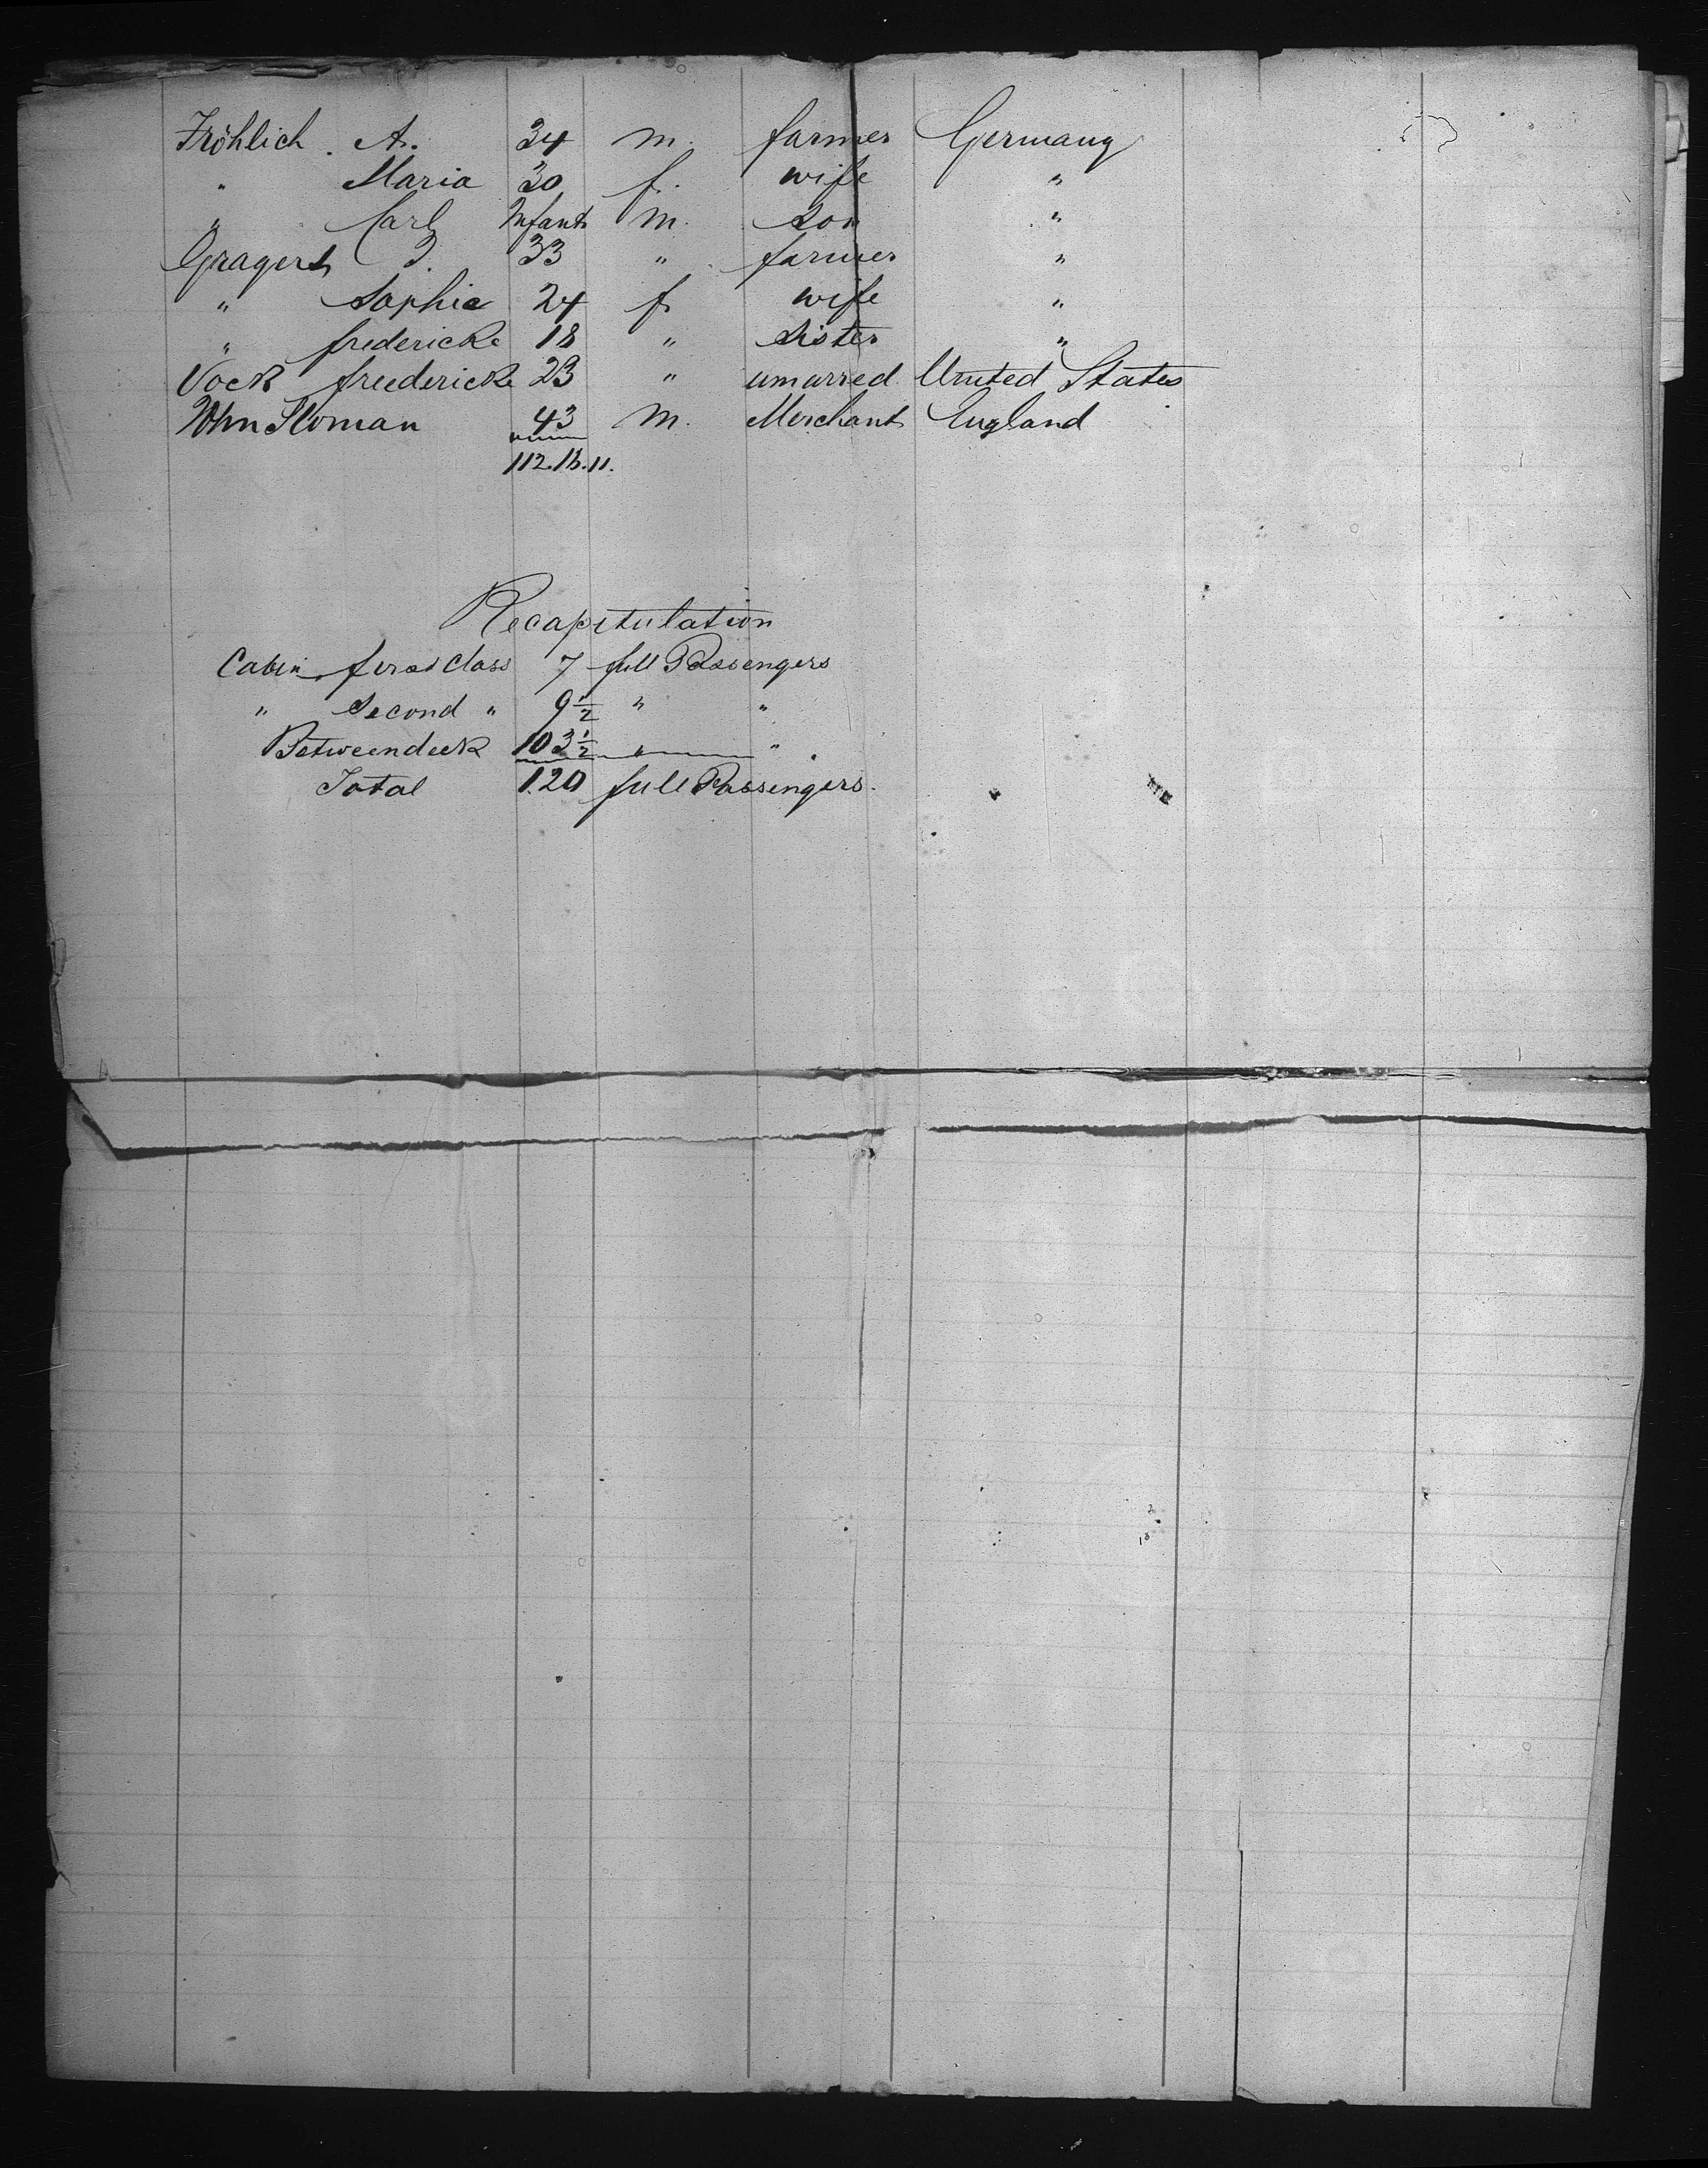 Fröhlich. A. 34 m. farmer Germany
" Maria 30 f. wife "
" Carl Infant m. son "
Gragert J. 33 " farmer "
" Sophie 24 f. wife "
" fredericke 18 " sister "
Vock freedericke 23 " unmarred United States
John Sloman 43 m. Merchant England
112.13.11.
Recapitulation
Cabin first class 7 full Passengers
" Second " 9½ " "
Betweendeck 103½ " "
Total 120 full Passengers.